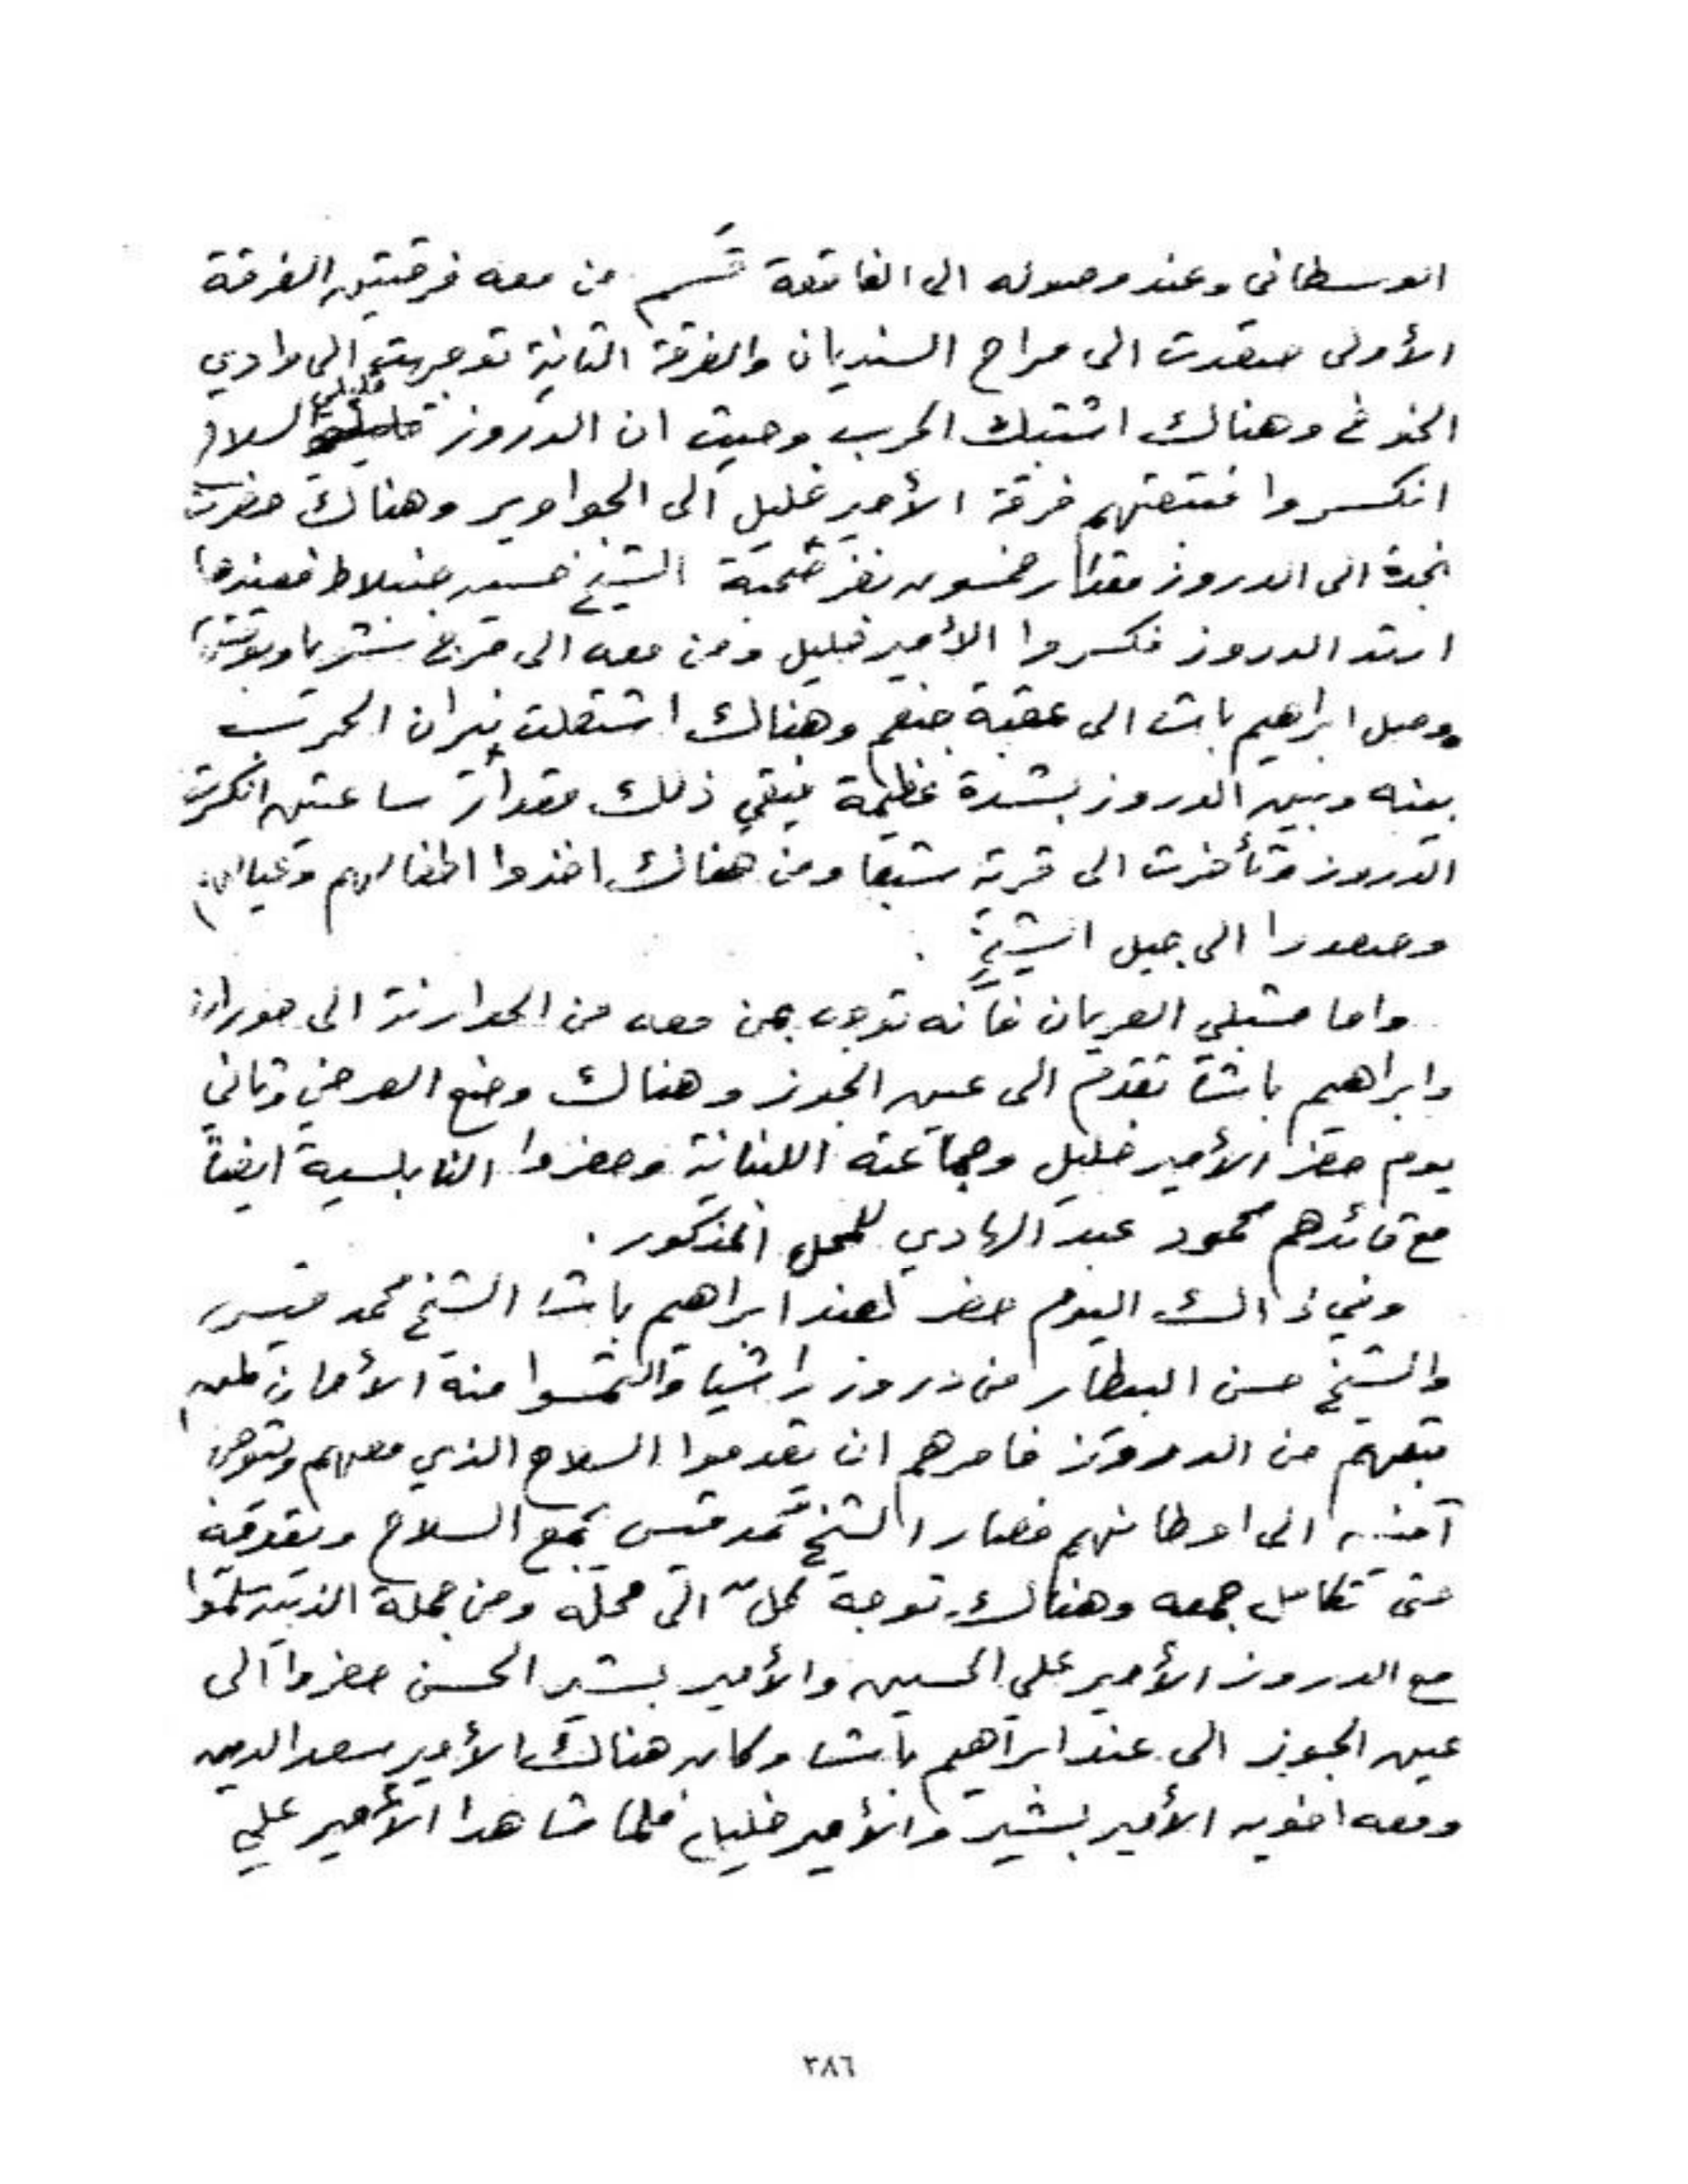 الوسطاني وعند وصوله الى الفاقعة قسَّم من معه فرقتين الفرقة
الأولى صعدت الى مراح السنديان والفرقة الثانية توجهت الى وادي
الخنوخ وهناك اشتبك الحرب وحيث ان الدروز قليلي السلاح
انكسروا فتبعتهم فرقة الأمير خليل الى الحواوير وهناك حضرت
نجدة الى الدروز مقدار خمسون نفر صحبة الشيخ حسين جنبلاط فعندها
ارتد الدروز فكسروا الأمير خليل ومن معه الى مرج شتريا وبوقتها
وصل ابراهيم باشا الى عقبة جنعم وهناك اشتعلت نيران الحرب
بينه وبين الدروز بشدة عظيمة فبقي ذلك مقدار ساعتين انكسرت
الدروز وتأخرت الى قرية شبعا ومن هناك اخذوا اطفالهم وعيالهم
وصعدوا الى جبل الشيخ .
واما شبلي العريان فانه توجه بمن معه من الحوارنة الى حوران
وابراهيم باشا تقدم الى عين الجوز وهناك وضع العرضي وثاني
يوم حضر الأمير خليل وجماعته اللبنانية وحضروا النابلسية ايضاً
مع قائدهم محمود عبد الهادي للمحل المذكور .
وفي ذاك اليوم حضر لعند ابراهيم باشا الشيخ محمد قيس
والشيخ حسن البيطار من دروز راشيا والتمسوا منه الأمان لمن
تبعهم من الدروز فامرهم ان يقدموا السلاح الذي معهم ويتوجهوا
آمنين الى اوطانهم فصار الشيخ محمد قيس يجمع السلاح ويقدمه
حتى تكامل جمعه وهناك توجه كلٌ الى محله ومن جملة الذين سلموا
مع الدروز الأمير علي الحسين والأمير بشير الحسن حضروا الى
عين الجوز الى عند ابراهيم باشا وكان هناك الأمير سعد الدين
ومعه اخويه الأمير بشير والأمير خليل فلما شاهدا الأمير علي
٣٨٦